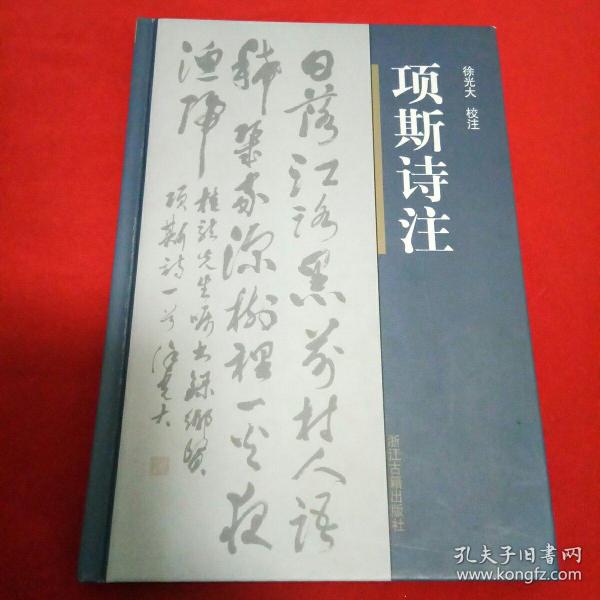 项斯诗注
徐光大 校注
日落江路黑前村人语
稀几家深树裡一火夜
渔归
桂龙先生嘱书录鄉贤
项斯诗一首 徐光大
浙江古籍出版社
孔夫子旧书网
www.kongfz.com